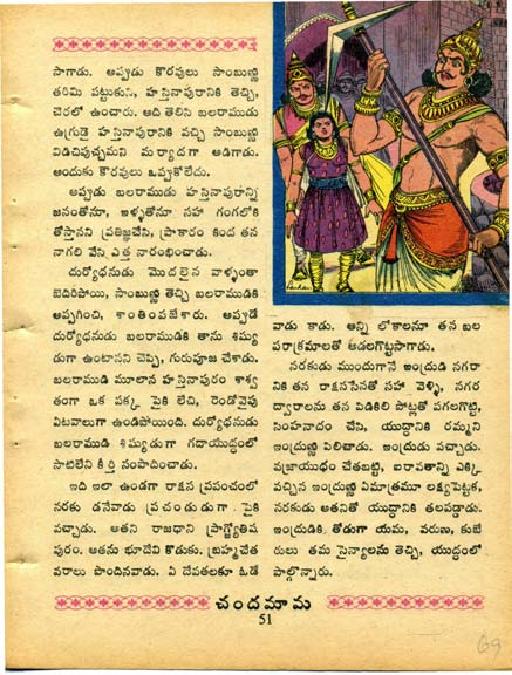 సాగాడు. అప్పుడు కౌరవులు సాంబుణ్ణి
తరిమి పట్టుకుని, హస్తినాపురానికి తెచ్చి,
చెరలో ఉంచారు. అది తెలిసి బలరాముడు
ఉగ్రుడై హస్తినాపురానికి వచ్చి సాంబుణ్ణి
విడిచిపుచ్చమని మర్యాదగా అడిగాడు.
అందుకు కౌరవులు ఒప్పుకోలేదు.
అప్పుడు బలరాముడు హస్తినాపురాన్ని
జనంతోనూ, ఇళ్ళతోనూ సహా గంగలోకి
తోస్తానని ప్రతిజ్ఞచేసి, ప్రాకారం కింద తన
నాగలి వేసి ఎత్త నారంభించాడు.
దుర్యోధనుడు మొదలైన వాళ్ళంతా
బెదిరిపోయి, సాంబుణ్ణి తెచ్చి బలరాముడికి
అప్పగించి, శాంతింపజేశారు. అప్పుడే
దుర్యోధనుడు బలరాముడికి తాను శిష్యు
డుగా ఉంటానని చెప్పి, గురుపూజ చేశాడు.
బలరాముడి మూలాన హస్తినాపురం శాశ్వ
తంగా ఒక పక్క పైకి లేచి, రెండోవైపు
ఏటవాలుగా ఉండిపోయింది. దుర్యోధనుడు
బలరాముడి శిష్యుడుగా గదాయుద్ధంలో
సాటిలేని కీర్తి సంపాదించాడు.
ఇది ఇలా ఉండగా రాక్షస ప్రపంచంలో
నరకు డనేవాడు ప్రచండుడుగా పైకి
వచ్చాడు. అతని రాజధాని ప్రాగ్జ్యోతిష
పురం. అతను భూదేవి కొడుకు, బ్రహ్మచేత
వరాలు పొందినవాడు. ఏ దేవతలకూ ఓడే
వాడు కాడు. అన్ని లోకాలనూ తన బల
పరాక్రమాలతో అదలగొట్టసాగాడు.
నరకుడు ముందుగానే ఇంద్రుడి నగరా
నికి తన రాక్షససేనతో సహా వెళ్ళి, నగర
ద్వారాలను తన పిడికిలి పోట్లతో పగలగొట్టి,
సింహనాదం చేసి, యుద్ధానికి రమ్మని
ఇంద్రుణ్ణి పిలిచాడు. ఇంద్రుడు వచ్చాడు.
వజ్రాయుధం చేతబట్టి, ఐరావతాన్ని ఎక్కి
వచ్చిన ఇంద్రుణ్ణి ఏమాత్రమూ లక్ష్యపెట్టక,
నరకుడు అతనితో యుద్ధానికి తలపడ్డాడు.
ఇంద్రుడికి తోడుగా యమ, వరుణ, కుబే
రులు తమ సైన్యాలను తెచ్చి, యుద్ధంలో
పాల్గొన్నారు.
చందమామ
51
69